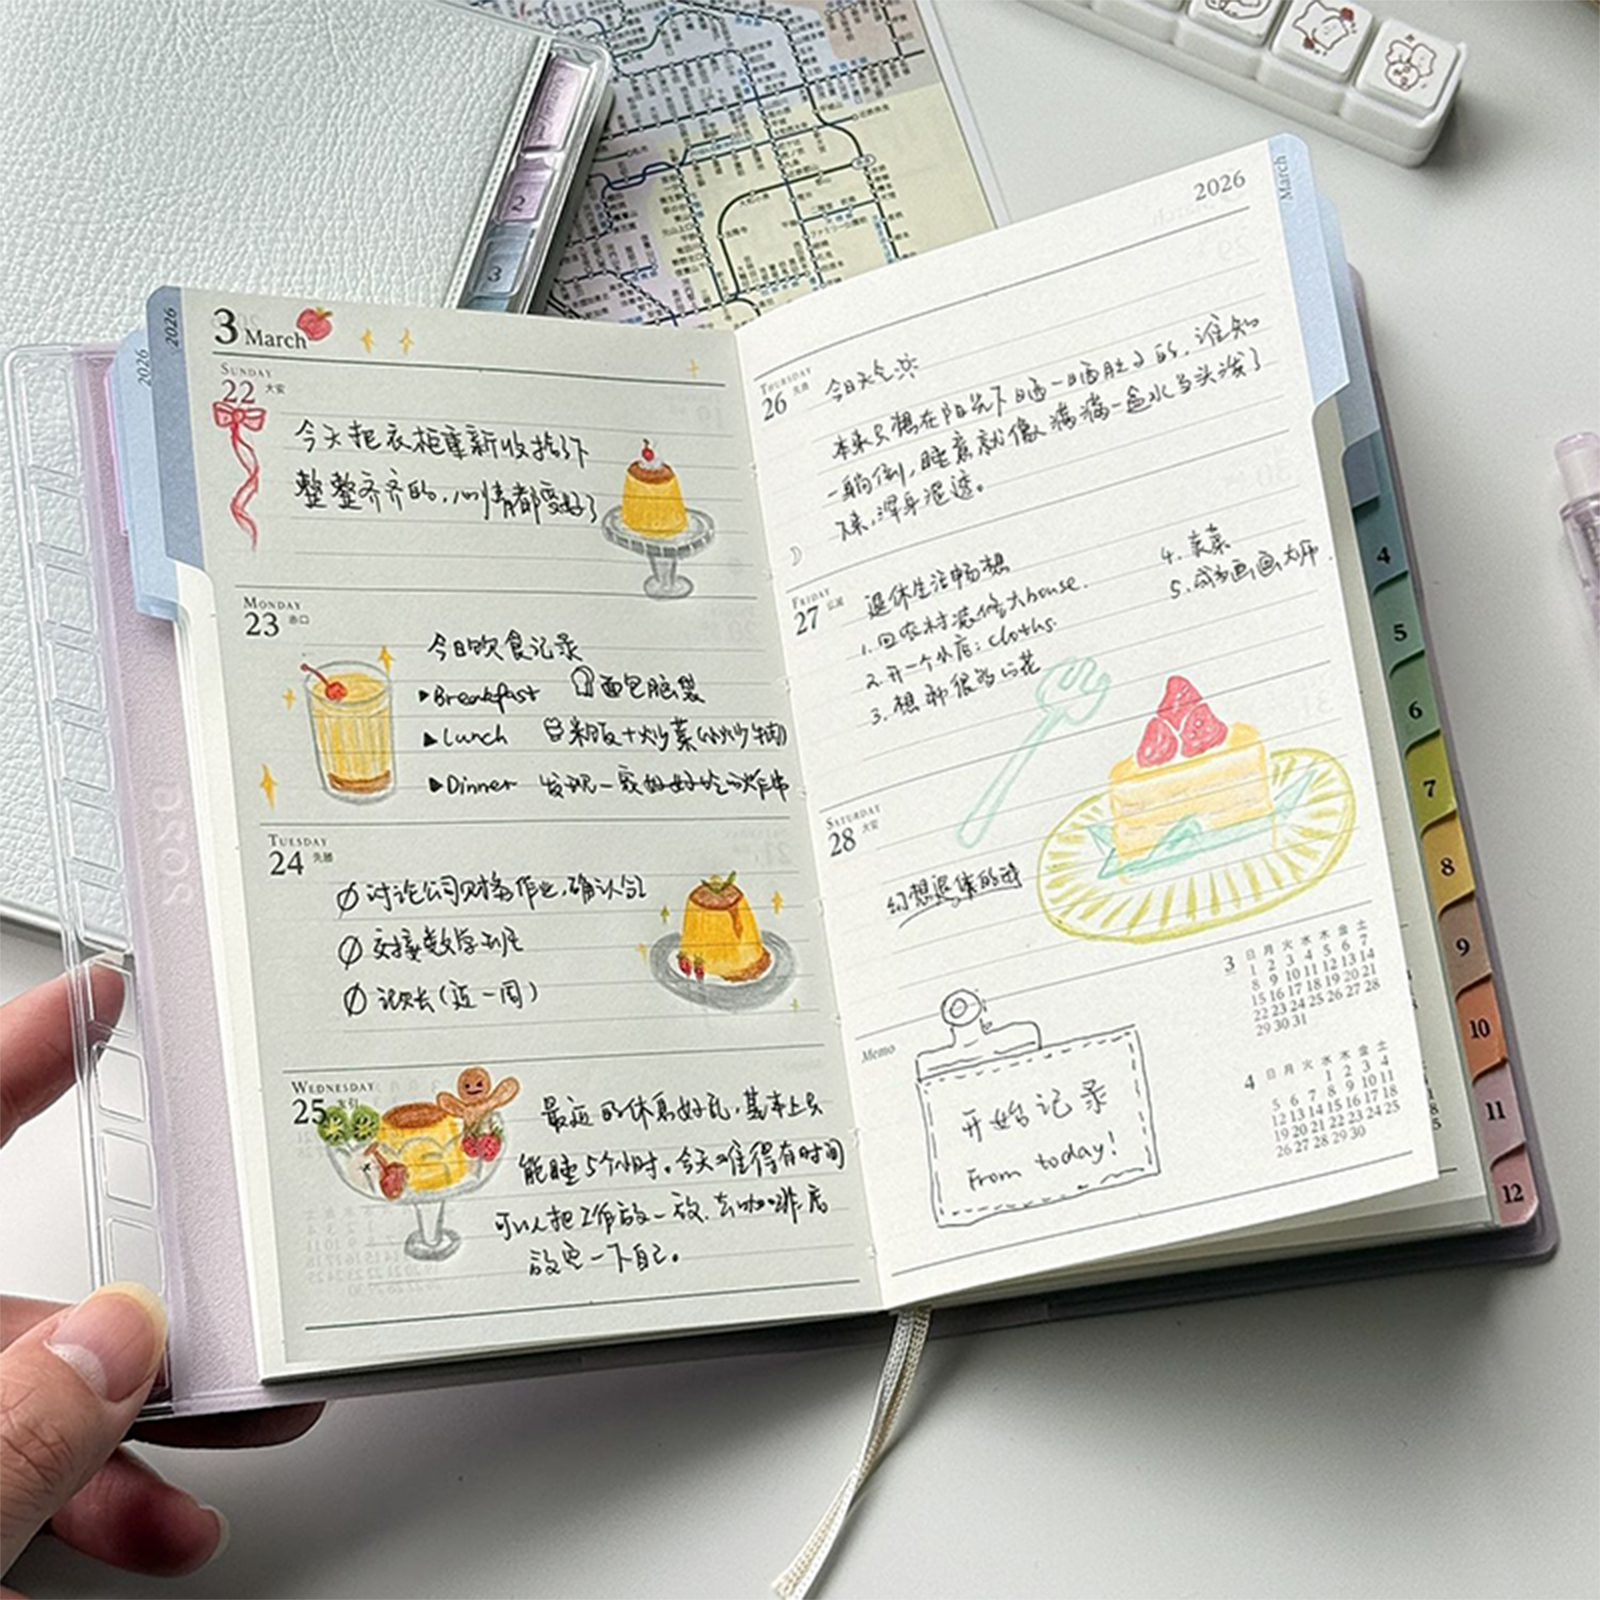 3 March
SUNDAY
22 大安
今天把衣柜重新收拾了下
整整齐齐的,心情都变好了
MONDAY
23 赤口
今日饮食记录
Breakfast 面包脑袋
Lunch 米饭+炒菜(小炒牛肉)
Dinner 发现一家好好吃的炸串
TUESDAY
24 先勝
讨论公司财务作业,确认
交接数学班
记账(近一周)
WEDNESDAY
25 友引
最近的休息好乱,基本上只
能睡5个小时。今天难得有时间
可以把工作放一放,去咖啡店
放空一下自己。
2026
2026
2
3
sosa
2026
March
THURSDAY
26 先負
今日天气:
本来只想在阳光下晒一晒肚子的,谁知
一躺倒,睡意就像满满一盆水当头泼了
下来,浑身湿透。
FRIDAY
27 仏滅
退休生活畅想
1. 回农村装修大house.
2. 开一个小店: cloths.
3. 想种很多的花
4. 卖菜
5. 成为画画大师.
SATURDAY
28 大安
幻想退休的我
3
日 月 火 水 木 金 土
1 2 3 4 5 6 7
8 9 10 11 12 13 14
15 16 17 18 19 20 21
22 23 24 25 26 27 28
29 30 31
4
日 月 火 水 木 金 土
1 2 3 4
5 6 7 8 9 10 11
12 13 14 15 16 17 18
19 20 21 22 23 24 25
26 27 28 29 30
Memo
开始记录
From today!
4
5
6
7
8
9
10
11
12